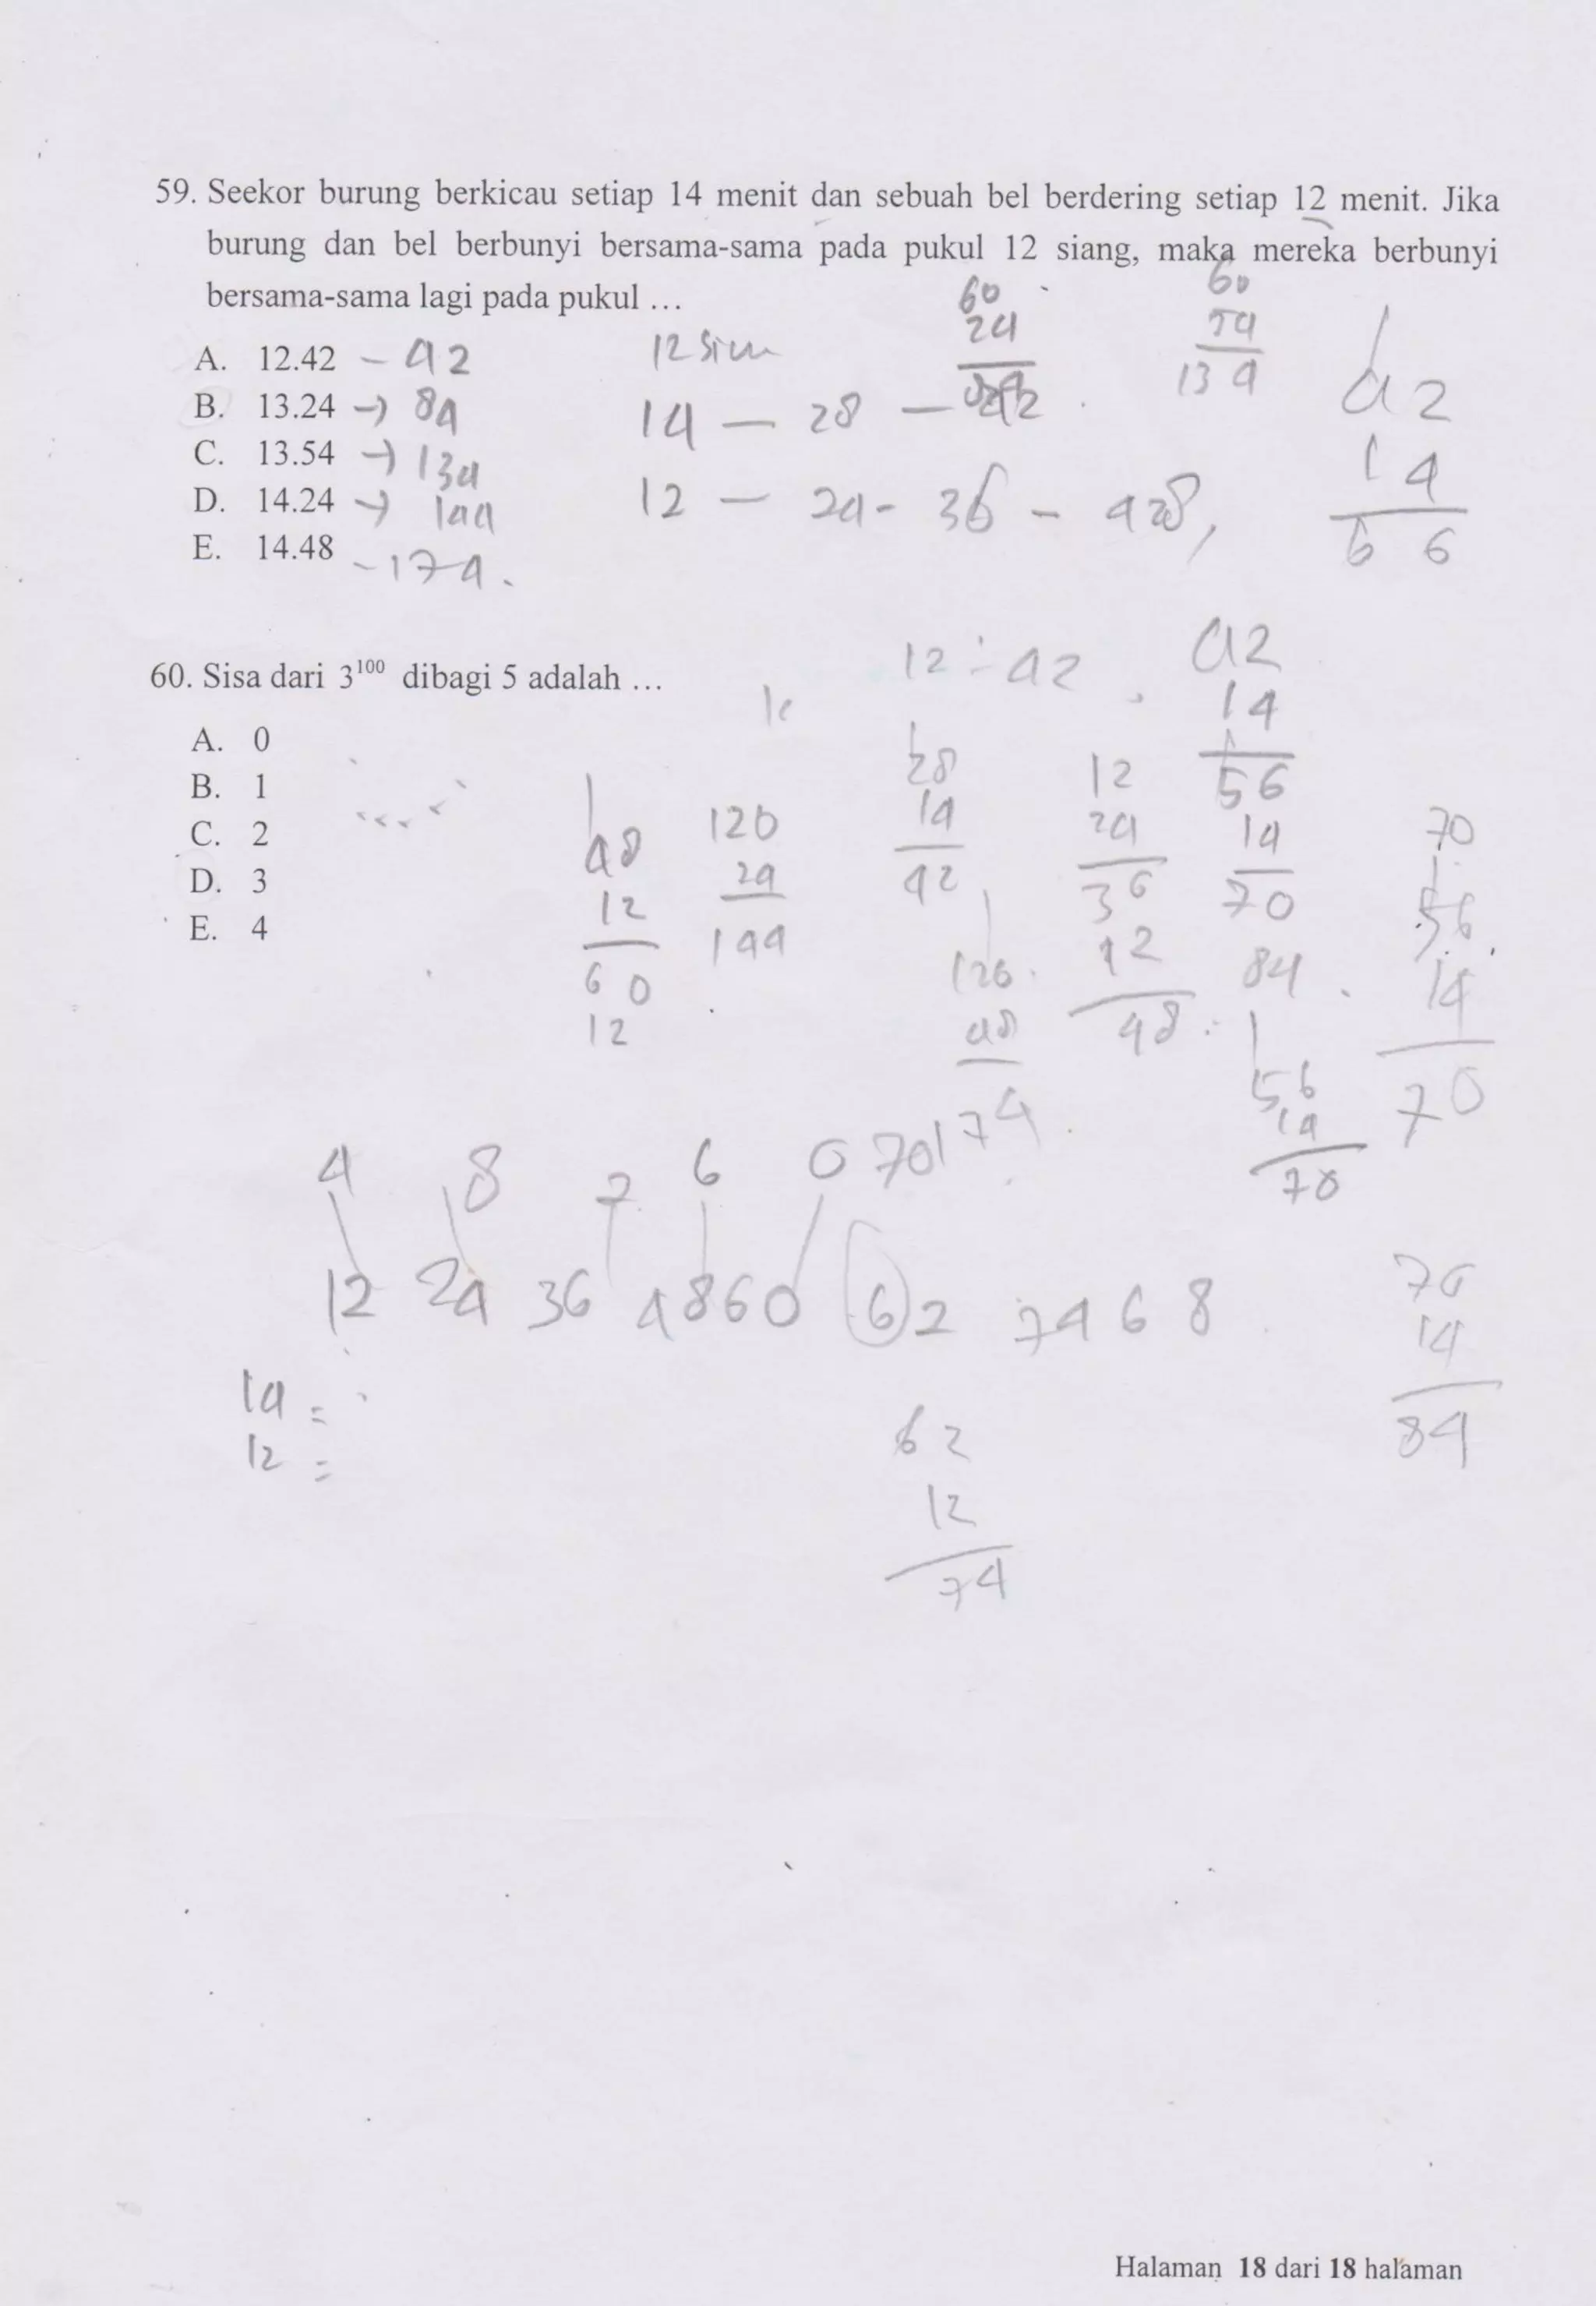 59. Seekor burung berkicau setiap 14 menit dan sebuah bel berdering setiap 12 menit. Jika
burung dan bel berbunyi bersama-sama pada pukul 12 siang, maka mereka berbunyi
bersama-sama lagi pada pukul ...
60
24
60
54
134
A. 12.42 – 42
B. 13.24 → 84
C. 13.54 → 134
D. 14.24 → 144
E. 14.48 – 174.
14 – 28 –
12 – 24 - 36 - 48,
42
14
56
60. Sisa dari 3¹⁰⁰ dibagi 5 adalah ...
A. 0
B. 1
C. 2
D. 3
E. 4
12 - 42
42
14
56
14
70
84
48
12
60
12
120
24
144
28
14
42
120
48
174
12
24
36
12
48
56
14
70
70
56
14
70
4 8 7 6 0 70
12 24 36 48 60 62 74 68
14 =
12 =
62
12
74
70
14
84
Halaman 18 dari 18 halaman